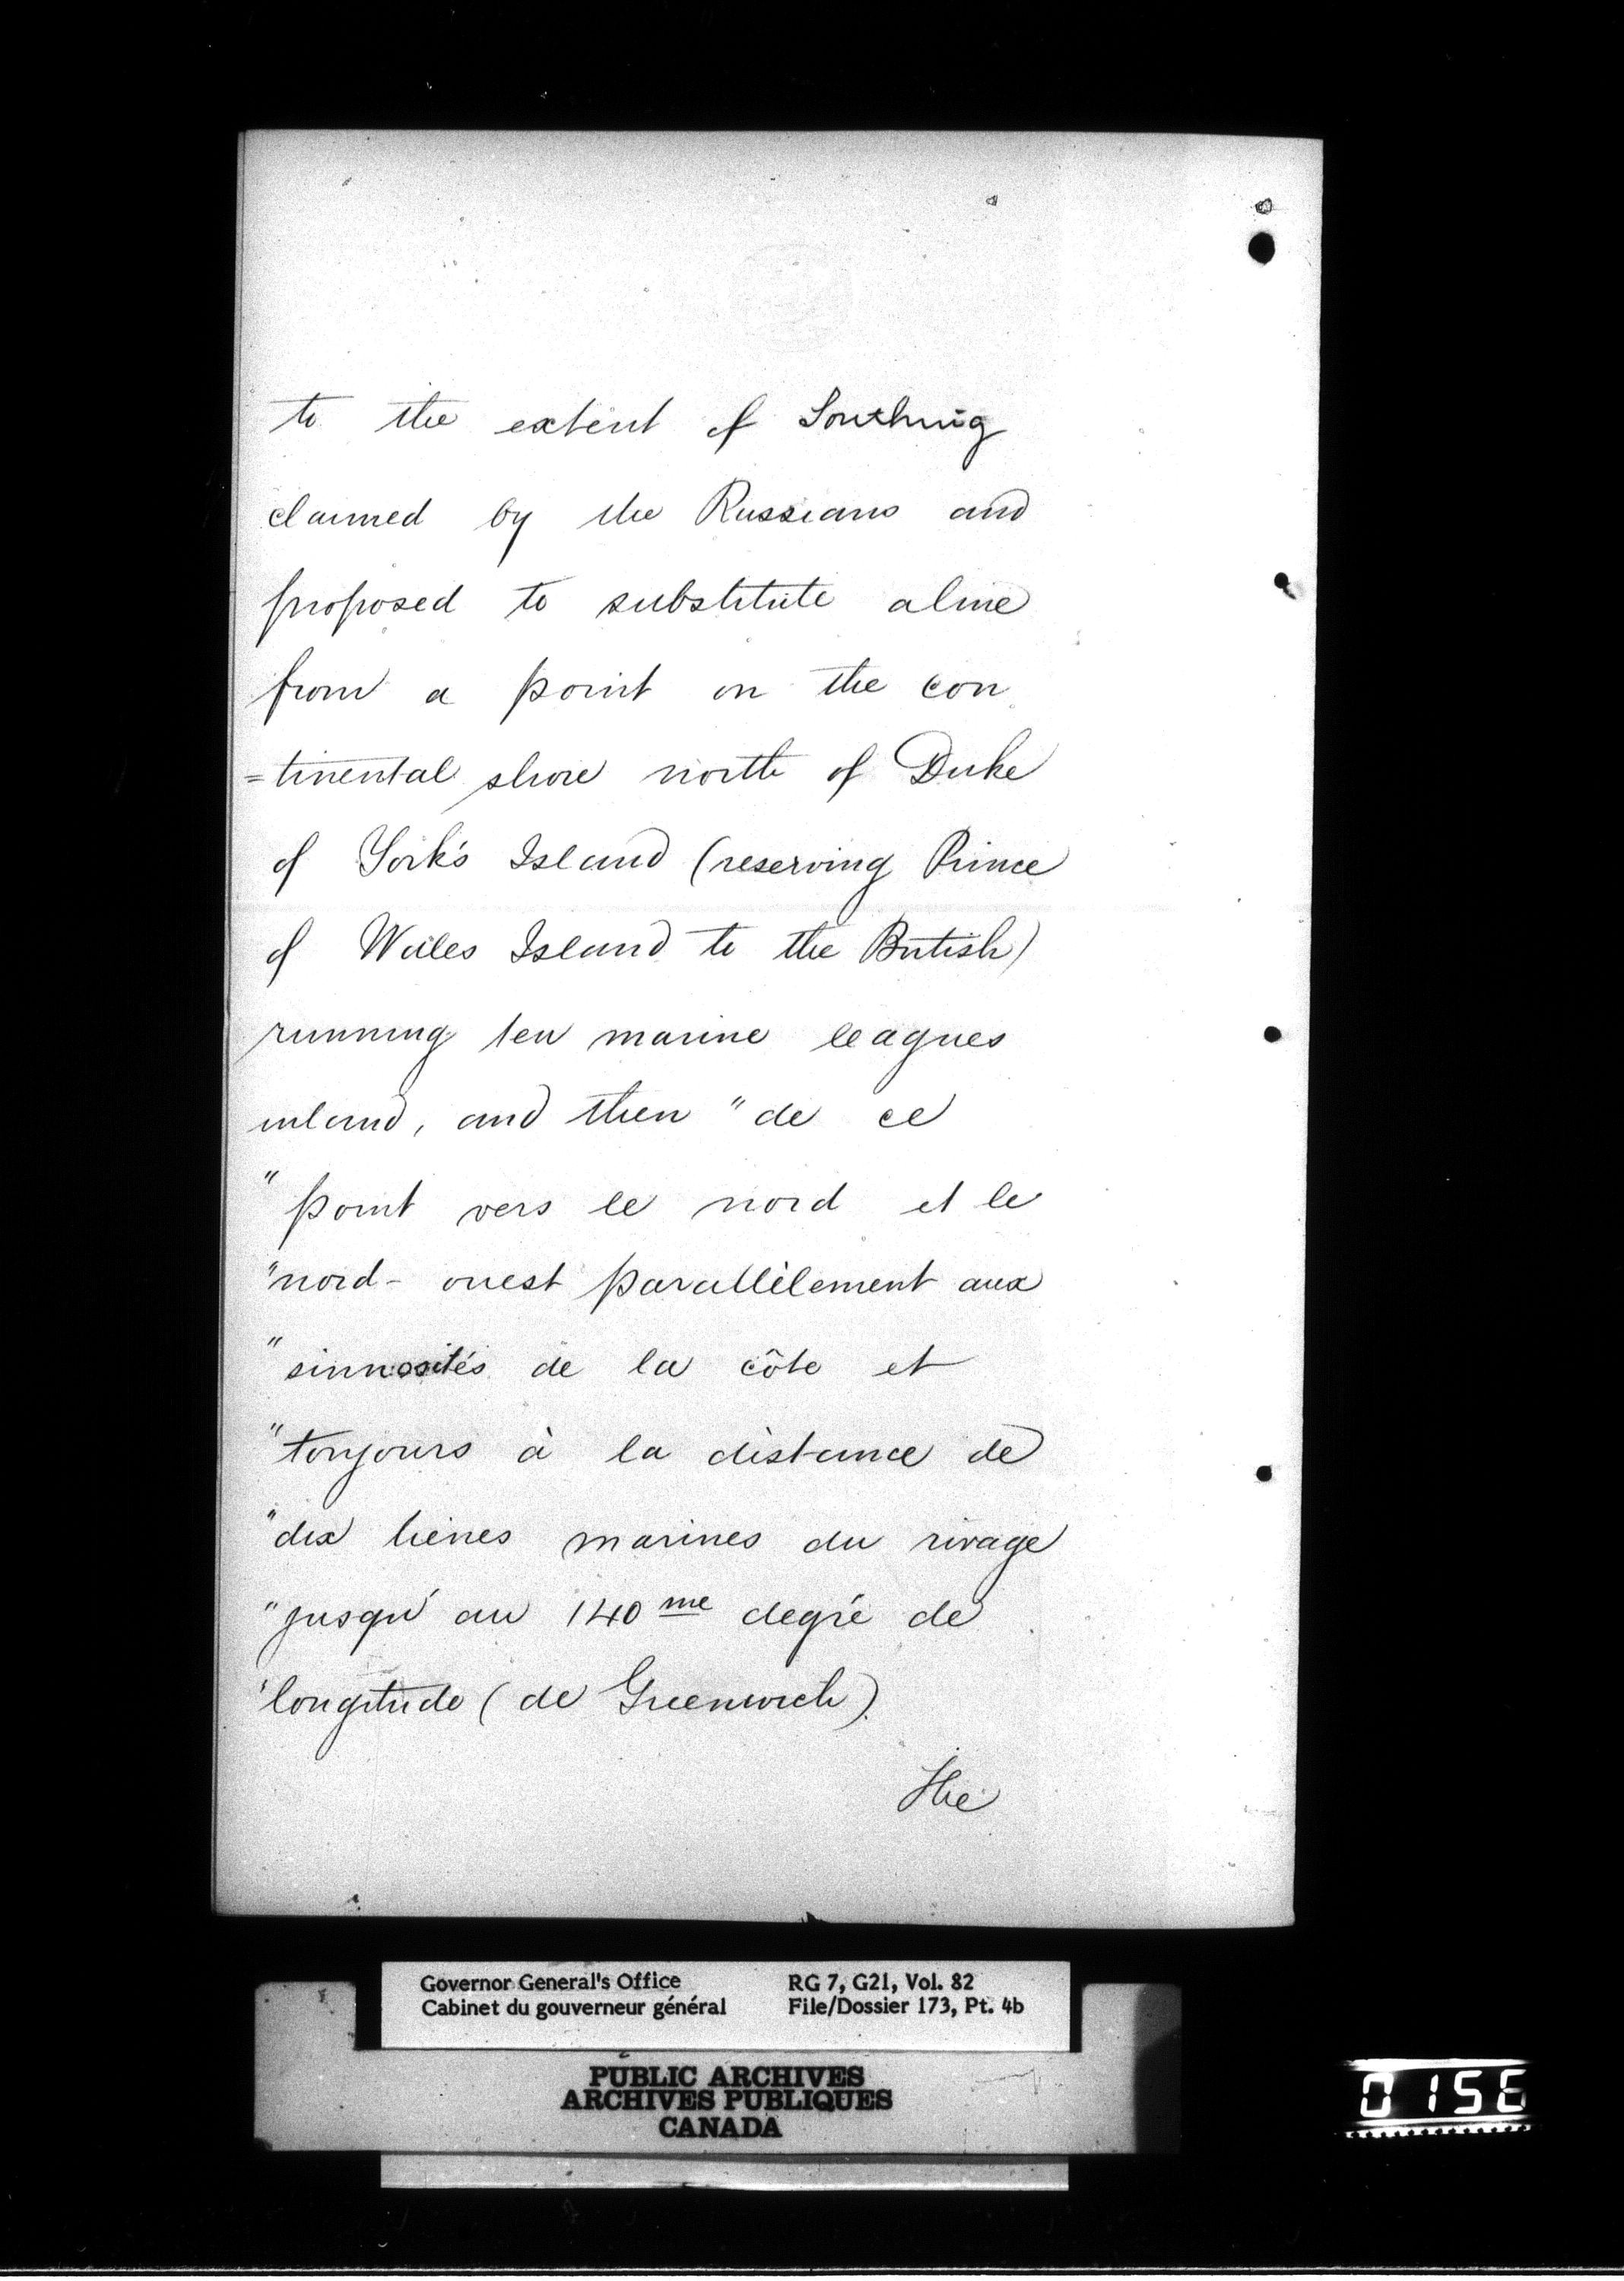 to the extent of Southing
claimed by the Russians and
proposed to substitute a line
from a point on the con
=tinental shore north of Duke
of York's Island (reserving Prince
of Wales Island to the British)
running ten marine leagues
inland, and then "de ce
"point vers le nord et le
"nord-ouest parallèlement aux
"sinuosités de la côte et
"toujours à la distance de
"dix lieues marines du rivage
"jusqu'au 140me degré de
'longitude (de Greenwich).
The
Governor General's Office RG 7, G21, Vol. 82
Cabinet du gouverneur général File/Dossier 173, Pt. 4b
PUBLIC ARCHIVES
ARCHIVES PUBLIQUES
CANADA
0156